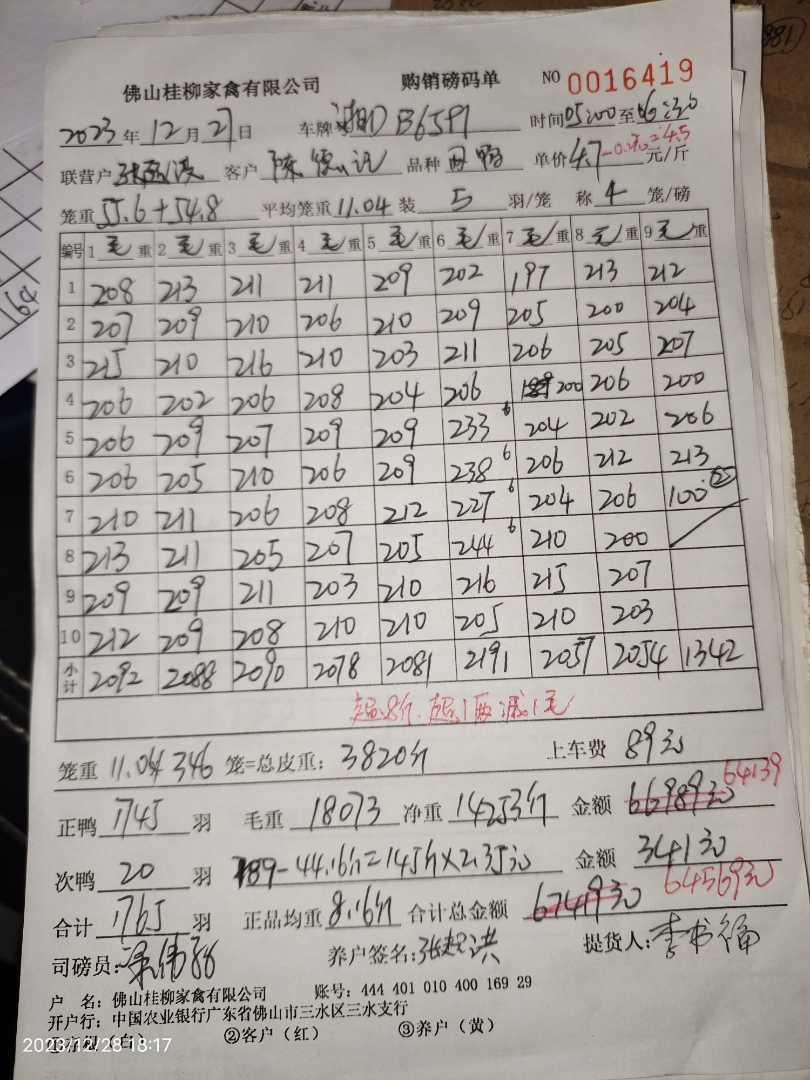 佛山桂柳家禽有限公司 购销磅码单 NO 0016419
2023年12月27日 车牌 湘D B6591 时间05:00至06:30
联营户 客户 陈 记 品种 单价4.7 =4.5 元/斤
笼重55.6+54.8 平均笼重11.04 装 5 羽/笼 称 4 笼/磅
编号 1毛重 2毛重 3毛重 4毛重 5毛重 6毛重 7毛重 8毛重 9毛重
1 208 213 211 211 209 202 197 213 212
2 207 209 210 206 210 209 205 200 204
3 215 210 216 210 203 211 206 205 207
4 206 202 206 208 204 206 200 206 200
5 206 209 207 209 209 233 6 204 202 206
6 206 205 210 206 209 238 6 206 212 213
7 210 211 206 208 212 227 6 204 206 100
8 213 211 205 207 205 244 6 210 200
9 209 209 211 203 210 216 215 207
10 212 209 208 210 210 205 210 203
小计 2092 2088 2090 2078 2081 2191 2057 2054 1342
笼重 11.04 346 笼=总皮重: 3820斤 上车费 89元
正鸭 1745 羽 毛重 18073 净重 14253斤 金额 66989元 64139
次鸭 20 羽 189-44.16斤=145斤×2.35元 金额 341元
合计 1765 羽 正品均重 8.16斤 合计总金额 67419元 64569元
司磅员: 养户签名: 张 洪 提货人: 李书福
户 名: 佛山桂柳家禽有限公司 账号: 444 401 010 400 169 29
开户行: 中国农业银行广东省佛山市三水区三水支行
①存根(白) ②客户(红) ③养户(黄)
2023/12/28 18:17